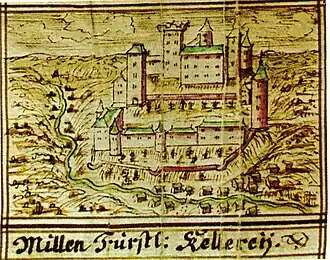 Millen Fürstl: Kellereÿ.